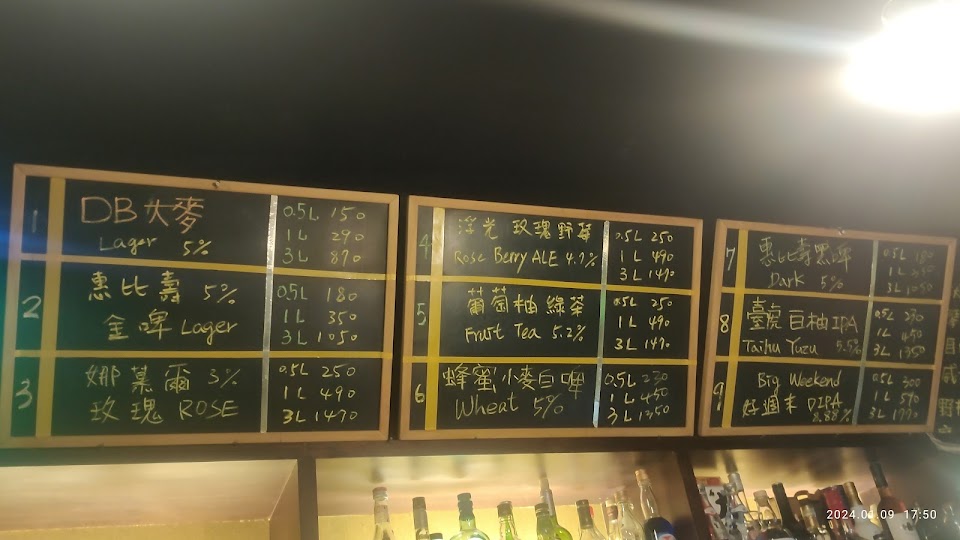 1
DB 大麥
Lager 5%
0.5L 150
1L 290
3L 870
2
惠比壽 5%
金啤 Lager
0.5L 180
1L 350
3L 1050
3
娜慕爾 3%
玫瑰 ROSE
0.5L 250
1L 490
3L 1470
4
浮光 玫瑰野莓
Rose Berry ALE 4.7%
0.5L 250
1L 490
3L 1470
5
葡萄柚綠茶
Fruit Tea 5.2%
0.5L 250
1L 490
3L 1470
6
蜂蜜小麥白啤
Wheat 5%
0.5L 230
1L 450
3L 1350
7
惠比壽黑啤
Dark 5%
0.5L 180
1L 350
3L 1050
8
臺虎 百柚IPA
Taihu Yuzu 5.5%
0.5L 230
1L 450
3L 1350
9
Big Weekend
好週末 DIPA
8.88%
0.5L 300
1L 590
3L 1770
2024.01.09 17:50